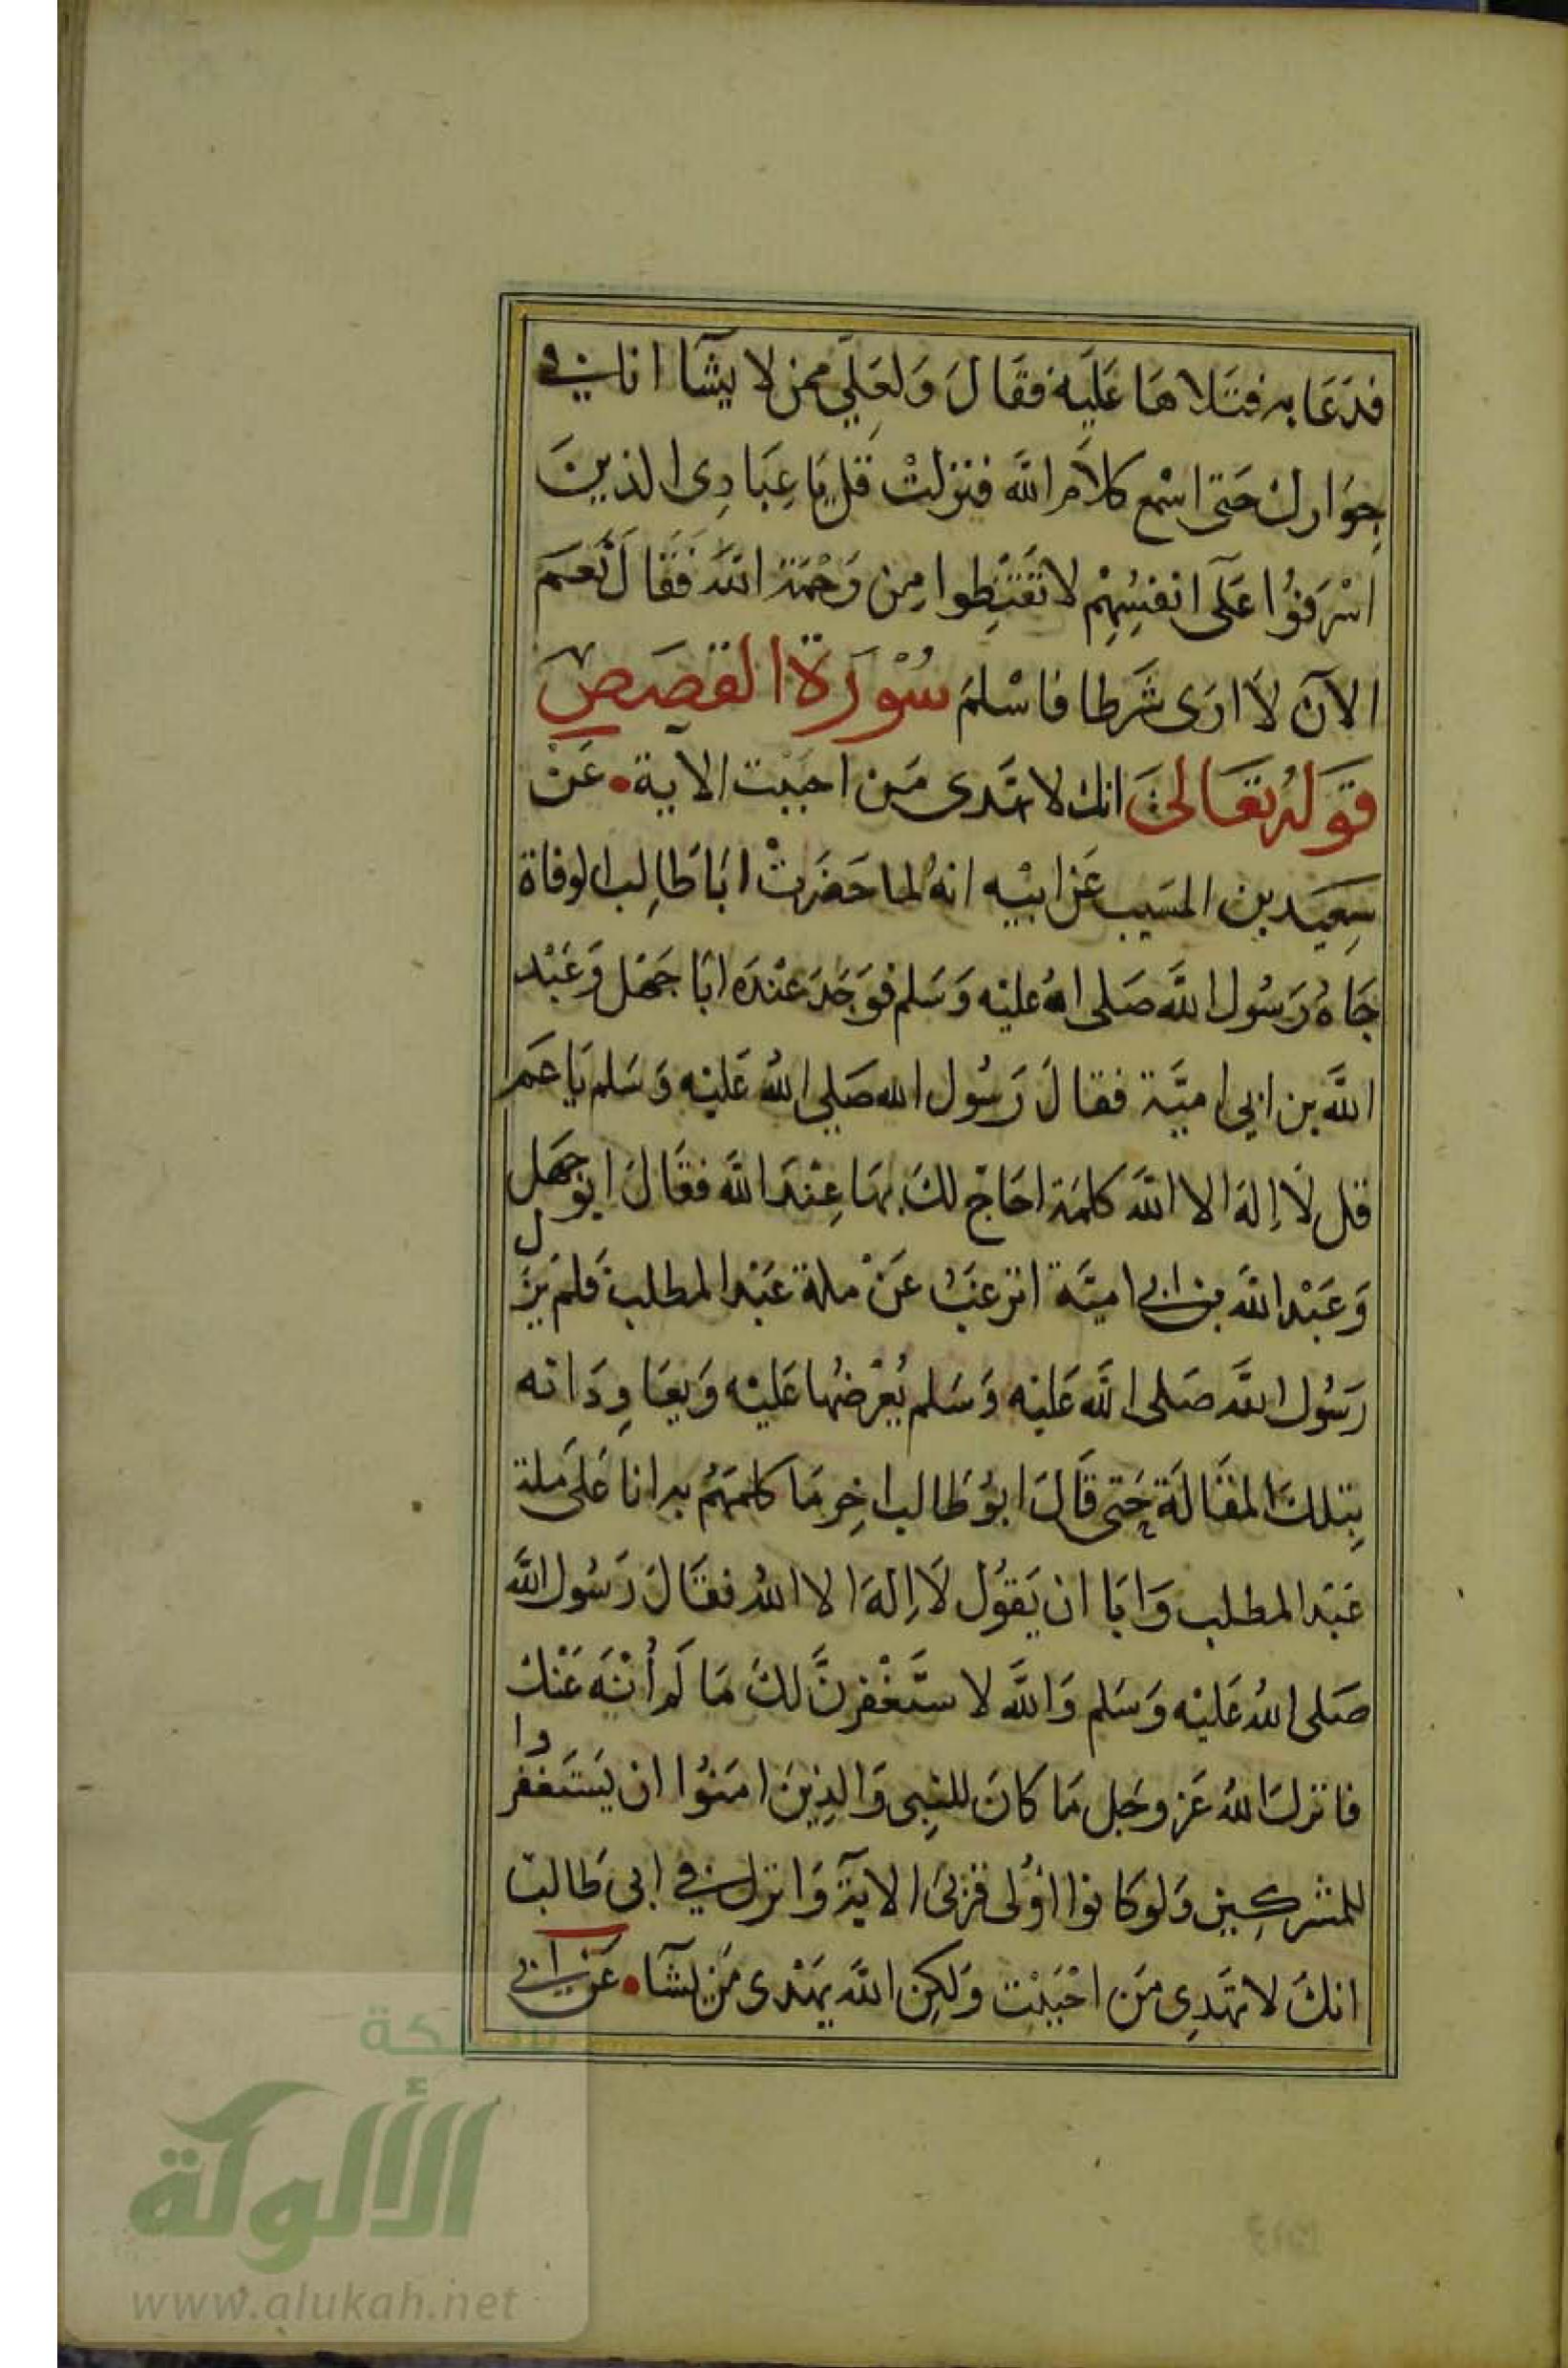 فدَعَا به فتَلاهَا عَليَه فقَالَ وَلعَلِّي ممن لا يشآا انا في
جِوَارك حَتى اسْمع كلاَم الله فنزلتْ قل يَا عِبَادِى الذينَ
اسْرَفوُا عَلَى انفسِهِمْ لا تَقَنَطِوا مِن رَحْمَة الله فَقَالَ نَعَم
الآن لاَ ارَى شَرطا فاسْلمَ سُوْرَة القصَصِ
قوَلهُ تعَالىَ انك لا تهَدى مَن احبَبْت الاية • عَن
سِعيَد بن المسَيب عَن ابيْه انهُ لما حَضَرَتْ ابَا طَالِب الوفاة
جَاهُ رَسُول الله صَلى الله عليْه وَسَلم فوَجَدَ عنْدَه ابَا جَهْل وَعَبْد
الله بن ابي اميَّة فقالَ رَسُول الله صَلي اللهُ عَليْه وَسَلم يَا عَم
قل لاَ إلهَ الا الله كلمَة احَاج لكَ بهَا عِنْدَ الله فقَالَ ابوُ جَهَل
وَعَبْد الله بن ابي اميَّة اترغبُ عَنْ ملة عَبْد المطلب فلمَ يَزل
رَسُول الله صَلى الله عَليْه وَسَلم يُعْرضُهَا عَليْه وَيعَاوِدَانه
بِتلكَ المقَالَة حَتى قَالَ ابوُ طَالب اخِر مَا كلمَهُم به انا عَلى مَلة
عَبْد المطلب وَابَا ان يَقوُل لاَ اِلهَ الا اللهُ فقَالَ رَسُول الله
صَلى اللهُ عَليْه وَسَلم وَالله لا ستَغْفِرنَّ لكَ مَا لَم أُنْهَ عَنْكَ
فانزلَ اللهُ عَز وجَل مَا كانَ للنِبى وَالذِينَ امَنوُا ان يَسَتغفروا
للمشركِين وَلوَكانوا اوْلى قرْبىَ الايَة وَانزل في ابى طَالب
انكَ لا تهَدِى مَن احْبَبْت وَلكِن الله يهَدى مَن يشآا • عَن ابي
شبكة
الألوكة
www.alukah.net